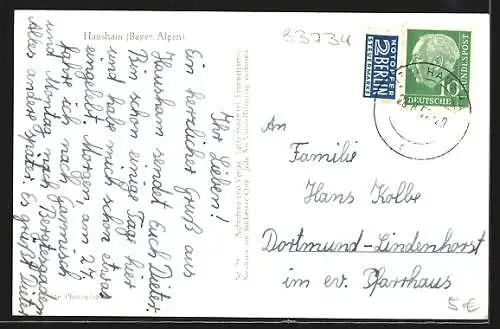 Hausham (Bayer. Alpen)
83734
Ihr Lieben!
Ein herzlicher Gruß aus
Hausham sendet Euch Dieter.
Bin schon einige Tage hier
und habe mich schon etwas
eingelebt. Morgen, am 24.
fahre ich nach Garmisch
und Montag nach Berchtesgaden
Alles andere später. Es grüßt Dieter
NOTOPFER
2 BERLIN
STEUERMARKE
DEUTSCHE BUNDESPOST
10
HA
An
Familie
Hans Kolbe
Dortmund-Lindenhorst
im ev. Pfarrhaus
5€